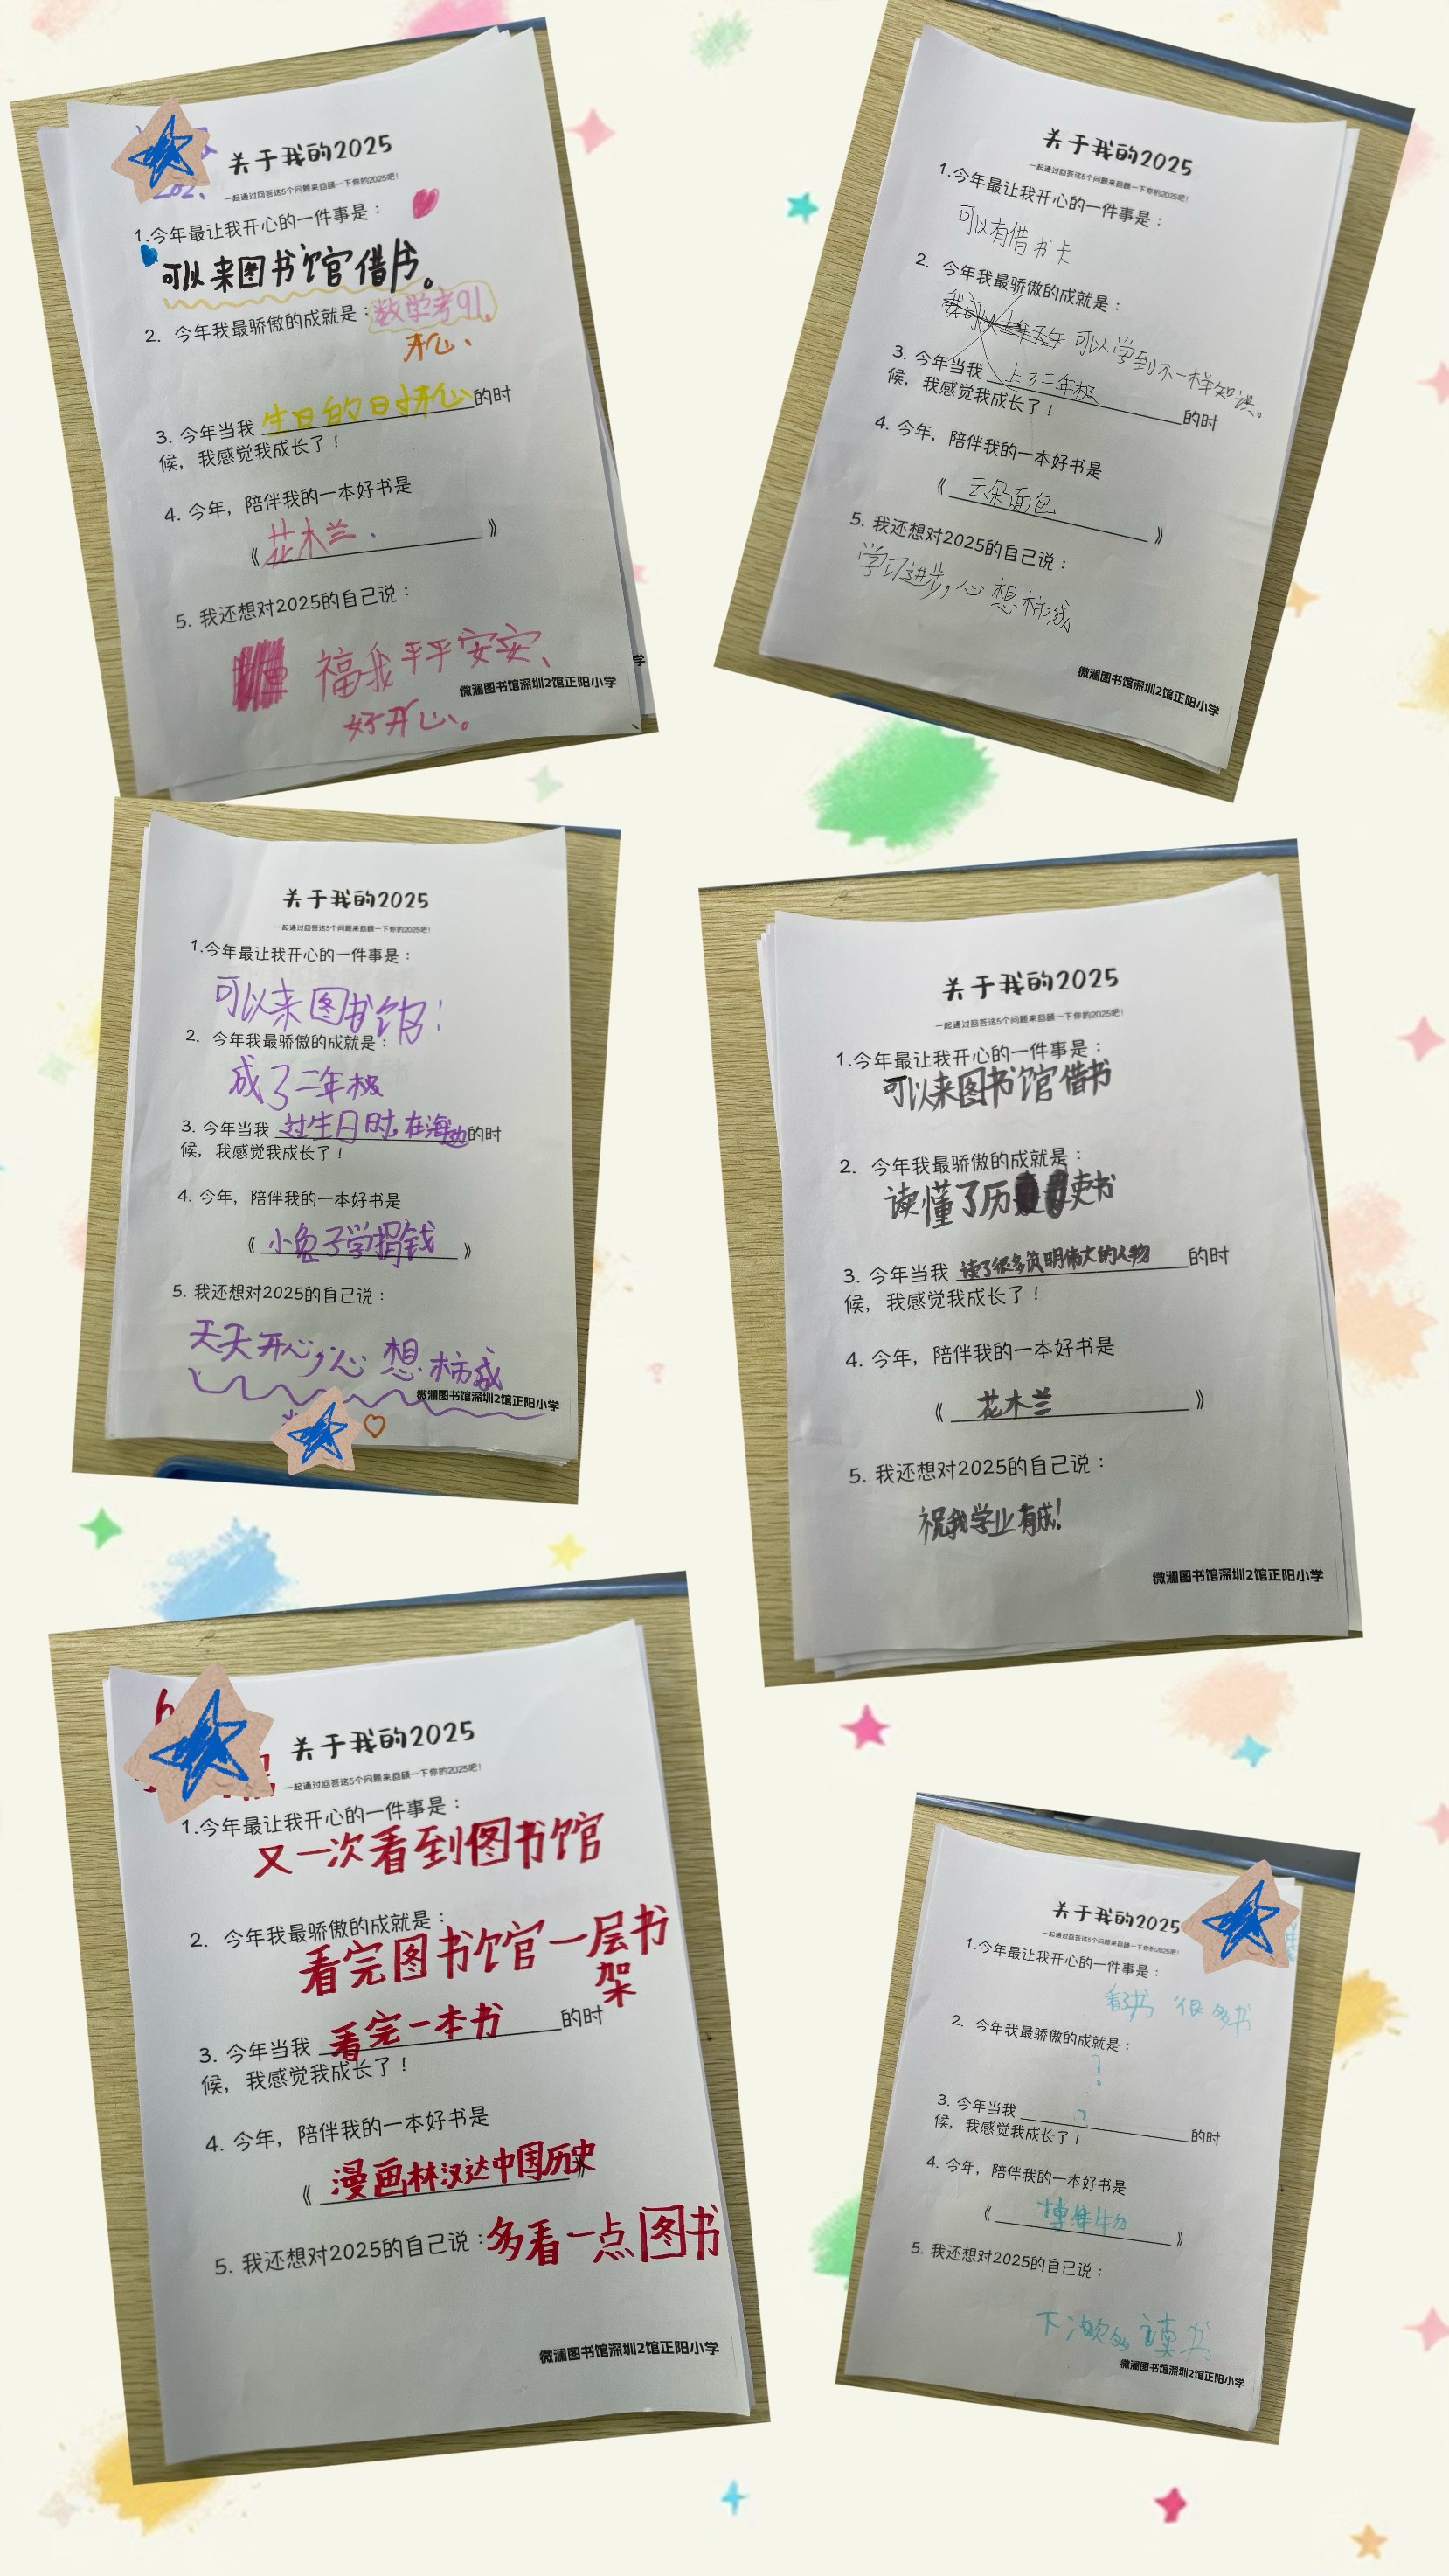 关于我的2025
一起通过回答这5个问题来回顾一下你的2025吧！
1.今年最让我开心的一件事是：
可以来图书馆借书。
2. 今年我最骄傲的成就是：数学考91。
开心、
3. 今年当我 生日的日子开心 的时
候，我感觉我成长了！
4. 今年，陪伴我的一本好书是
《花木兰.》
5. 我还想对2025的自己说：
福我平平安安、
好开心。
微澜图书馆深圳2馆正阳小学
关于我的2025
一起通过回答这5个问题来回顾一下你的2025吧！
1.今年最让我开心的一件事是：
可以有借书卡
2. 今年我最骄傲的成就是：
可以学到不一样知识。
3. 今年当我 上了二年级 的时
候，我感觉我成长了！
4. 今年，陪伴我的一本好书是
《云朵面包》
5. 我还想对2025的自己说：
学习进步，心想柿成
微澜图书馆深圳2馆正阳小学
关于我的2025
一起通过回答这5个问题来回顾一下你的2025吧！
1.今年最让我开心的一件事是：
可以来图书馆！
2. 今年我最骄傲的成就是：
成了二年级
3. 今年当我 过生日时，在海边 的时
候，我感觉我成长了！
4. 今年，陪伴我的一本好书是
《小兔子学捐钱》
5. 我还想对2025的自己说：
天天开心，心想柿成
微澜图书馆深圳2馆正阳小学
关于我的2025
一起通过回答这5个问题来回顾一下你的2025吧！
1.今年最让我开心的一件事是：
可以来图书馆借书
2. 今年我最骄傲的成就是：
读懂了历史书
3. 今年当我 读了很多明伟大的人物 的时
候，我感觉我成长了！
4. 今年，陪伴我的一本好书是
《花木兰》
5. 我还想对2025的自己说：
祝我学业有成！
微澜图书馆深圳2馆正阳小学
关于我的2025
一起通过回答这5个问题来回顾一下你的2025吧！
1.今年最让我开心的一件事是：
又一次看到图书馆
2. 今年我最骄傲的成就是：
看完图书馆一层书
架
3. 今年当我 看完一本书 的时
候，我感觉我成长了！
4. 今年，陪伴我的一本好书是
《漫画林汉达中国历史》
5. 我还想对2025的自己说：多看一点图书
微澜图书馆深圳2馆正阳小学
关于我的2025
一起通过回答这5个问题来回顾一下你的2025吧！
1.今年最让我开心的一件事是：
看书 很多书
2. 今年我最骄傲的成就是：
？
3. 今年当我 ？ 的时
候，我感觉我成长了！
4. 今年，陪伴我的一本好书是
《 》
5. 我还想对2025的自己说：
下次多读书
微澜图书馆深圳2馆正阳小学